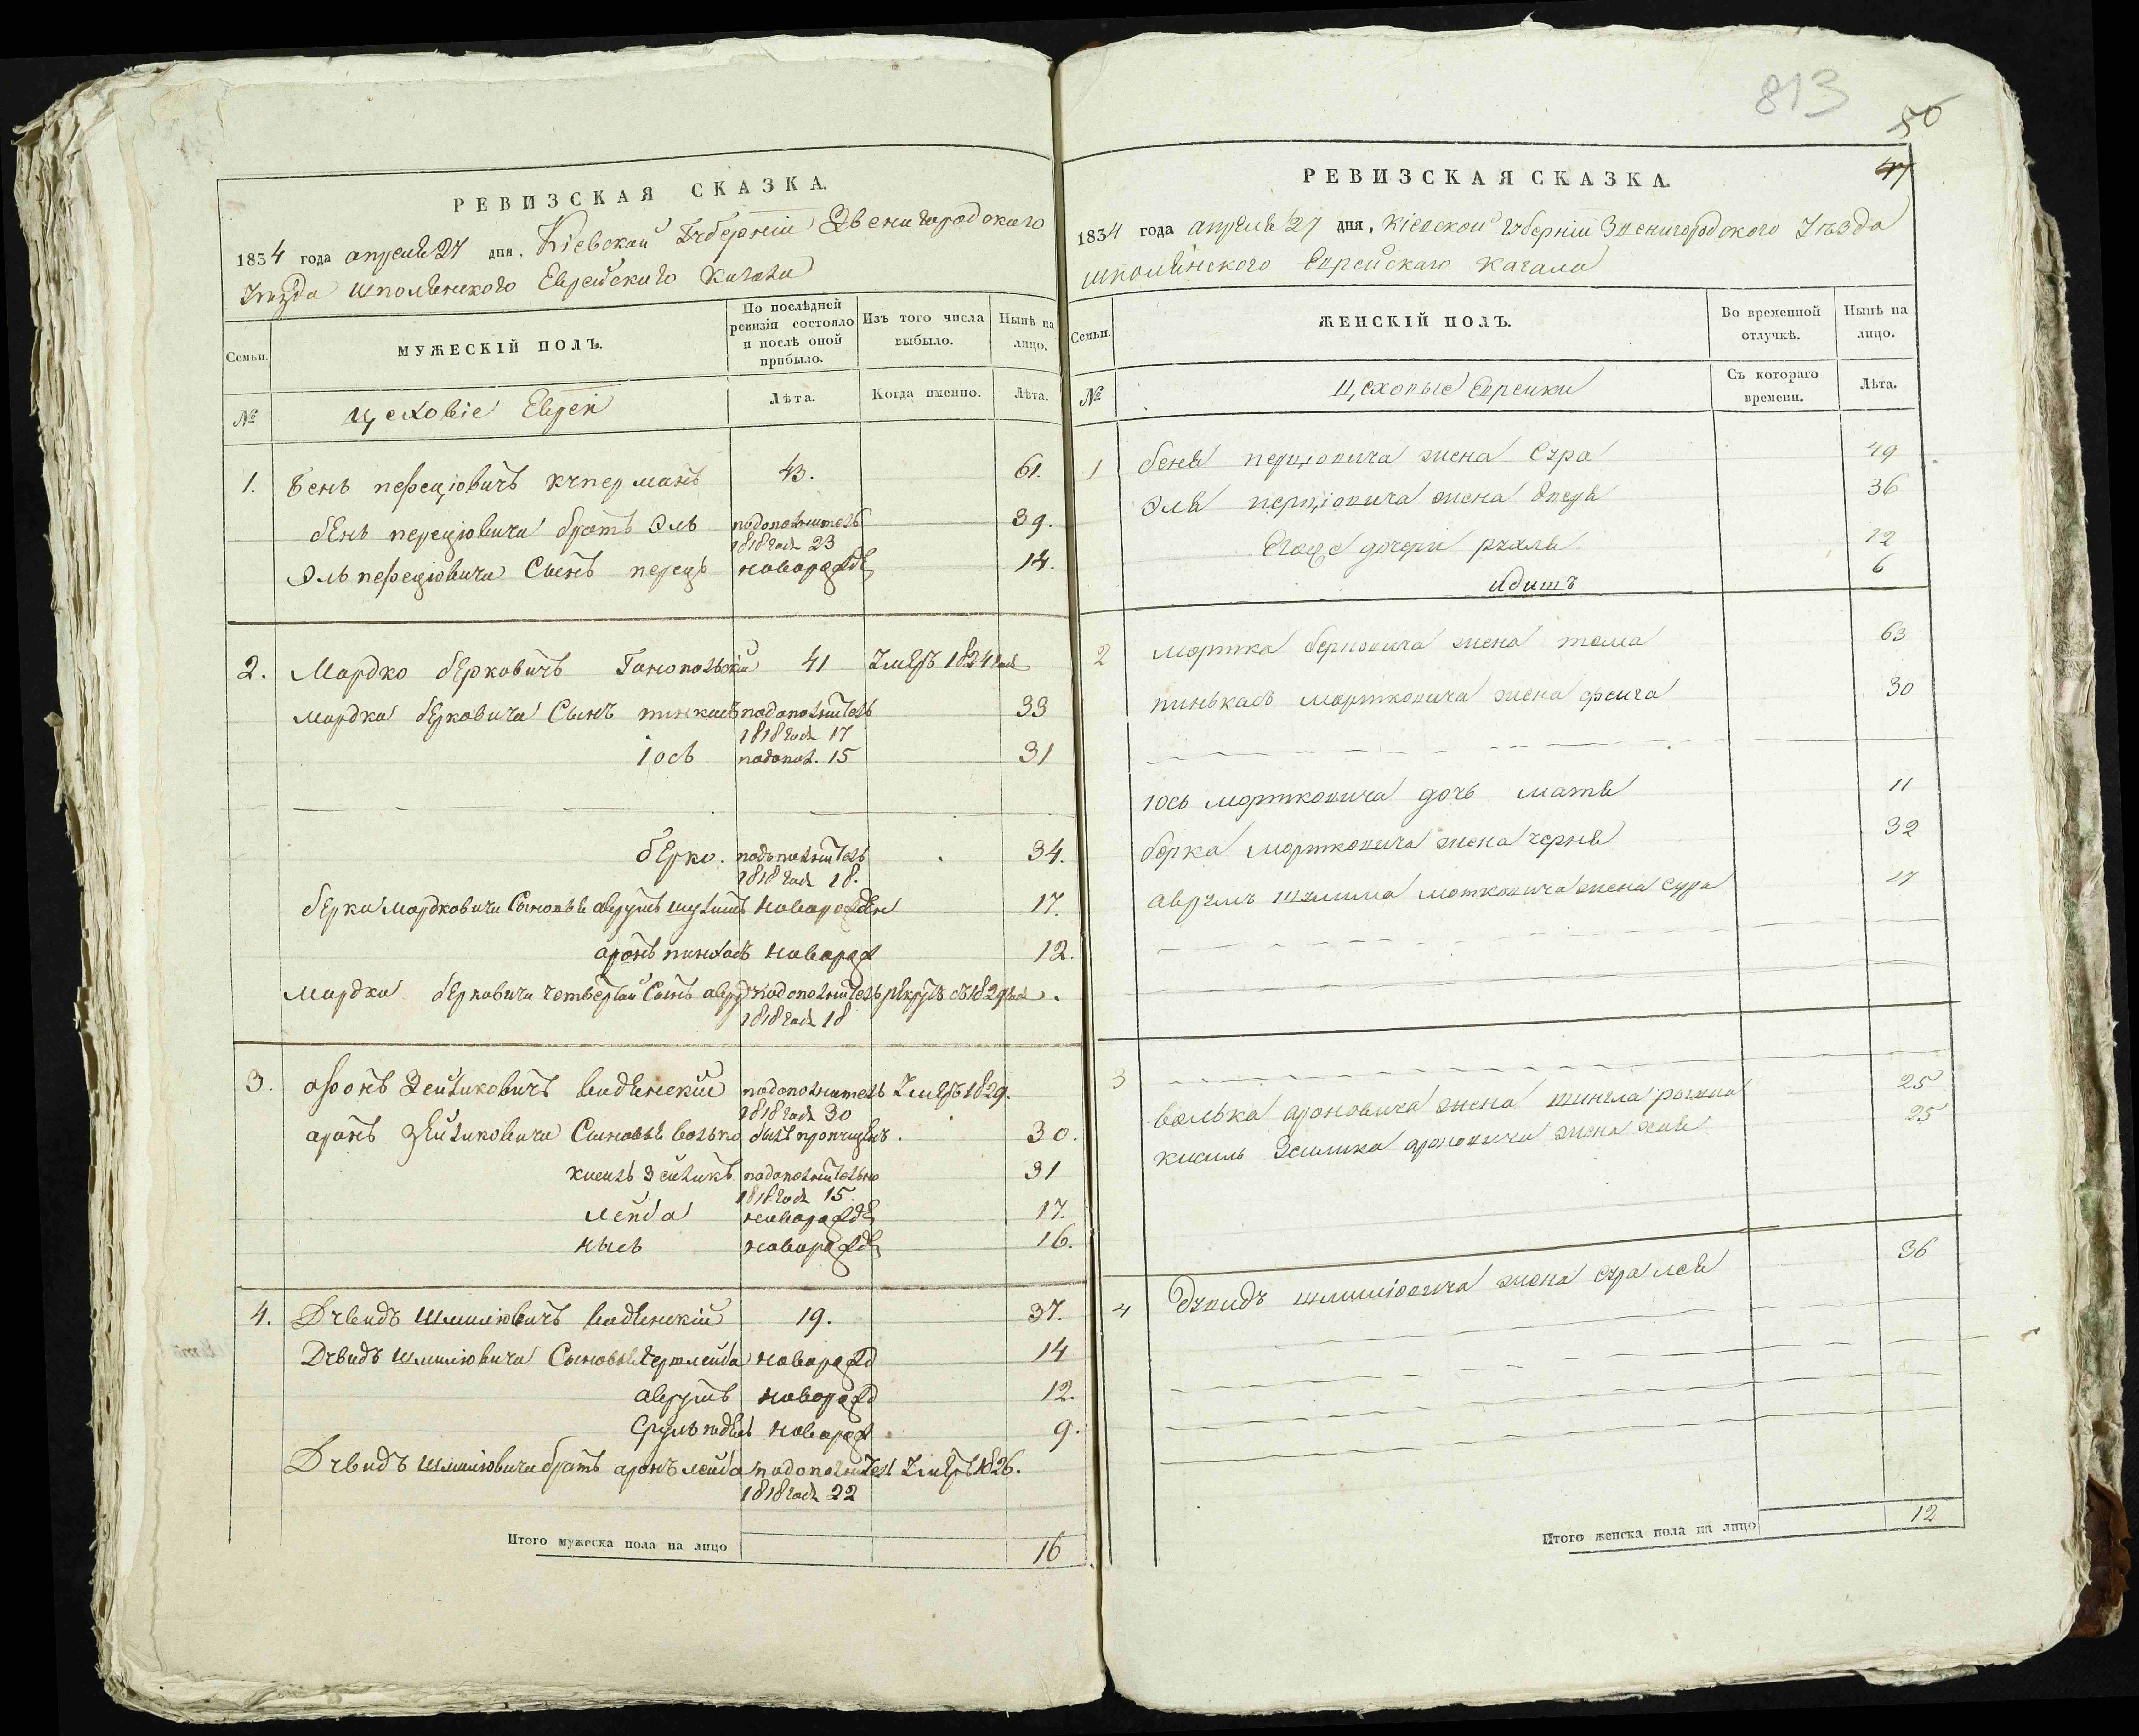 РЕВИЗСКАЯ СКАЗКА.
1834 года апреля 27 дня, Кіевской Губерніи Звенигородскаго
Уезда Шполянского Еврейскаго Кагала
Семьи.
МУЖЕСКІЙ ПОЛЪ.
По послѣдней ревизіи состояло и послѣ оной прибыло.
Изъ того числа выбыло.
Нынѣ на лицо.
№
Цеховіе Евреи
Лѣта.
Когда именно.
Лѣта.
1. Бень переціовичъ Куперманъ 43. 61.
бень перецiовича братъ Эль 39.
1818 года 23
Эль перецiовича Сынъ перецъ новорожде 14.
2. Мордко берковичъ 41 Умеръ 1824 года
мордка берковича Сынъ пинкасъ 33
1818 года 17
Іось пополн. 15 31
берко. 34.
1818 года 18.
берка мордковича Сыновья аврумъ шулимъ новорожден 17.
аронъ пинхасъ новорож 12.
мордка берковича четвертый Сынъ рекрутъ въ 1829 года.
1818 года 18
3. аронъ Зейликовичъ Умеръ 1829.
1818 года 30
аронъ зейликовича Сыновья волько былъ пропущенъ. 30.
кисель зейликъ 31
1818 года 15.
лейба новорожде 17.
нысь новорожде 16.
4. Дувидъ Шмилiовичъ 19. 37.
Дувидъ шмилiовича Сыновья гершлейба новорожд 14
аврумъ новорожд 12.
Сруль новорож 9.
Дувидъ шмилiовича братъ аронъ лейба Умеръ 1826.
1818 года 22
Итого мужеска пола на лицо 16
813
50
47
РЕВИЗСКАЯ СКАЗКА.
1834 года апреля 27 дня, Кіевской Губерніи Звенигородского Уезда
шполянского Еврейскаго Кагала
Семьи.
ЖЕНСКІЙ ПОЛЪ.
Во временной отлучкѣ.
Нынѣ на лицо.
№
Цеховые Еврейки
Съ котораго времени.
Лѣта.
1 беня перціовича жена Сура 49
Эля перціовича жена двера 36
Егоже дочери рухля 12
идитъ 6
2 мортка берковича жена тема 63
пинькасъ мортковича жена фейга 30
Іось мортковича дочь матя 11
берка мортковича жена черня 32
аврумъ шулима мотковича жена сура 17
3
волька ароновича жена 25
кисиль Зейлика ароновича жена хая 25
4 Дувидъ шмиліовича жена сура лея 36
Итого женска пола на лицо 12